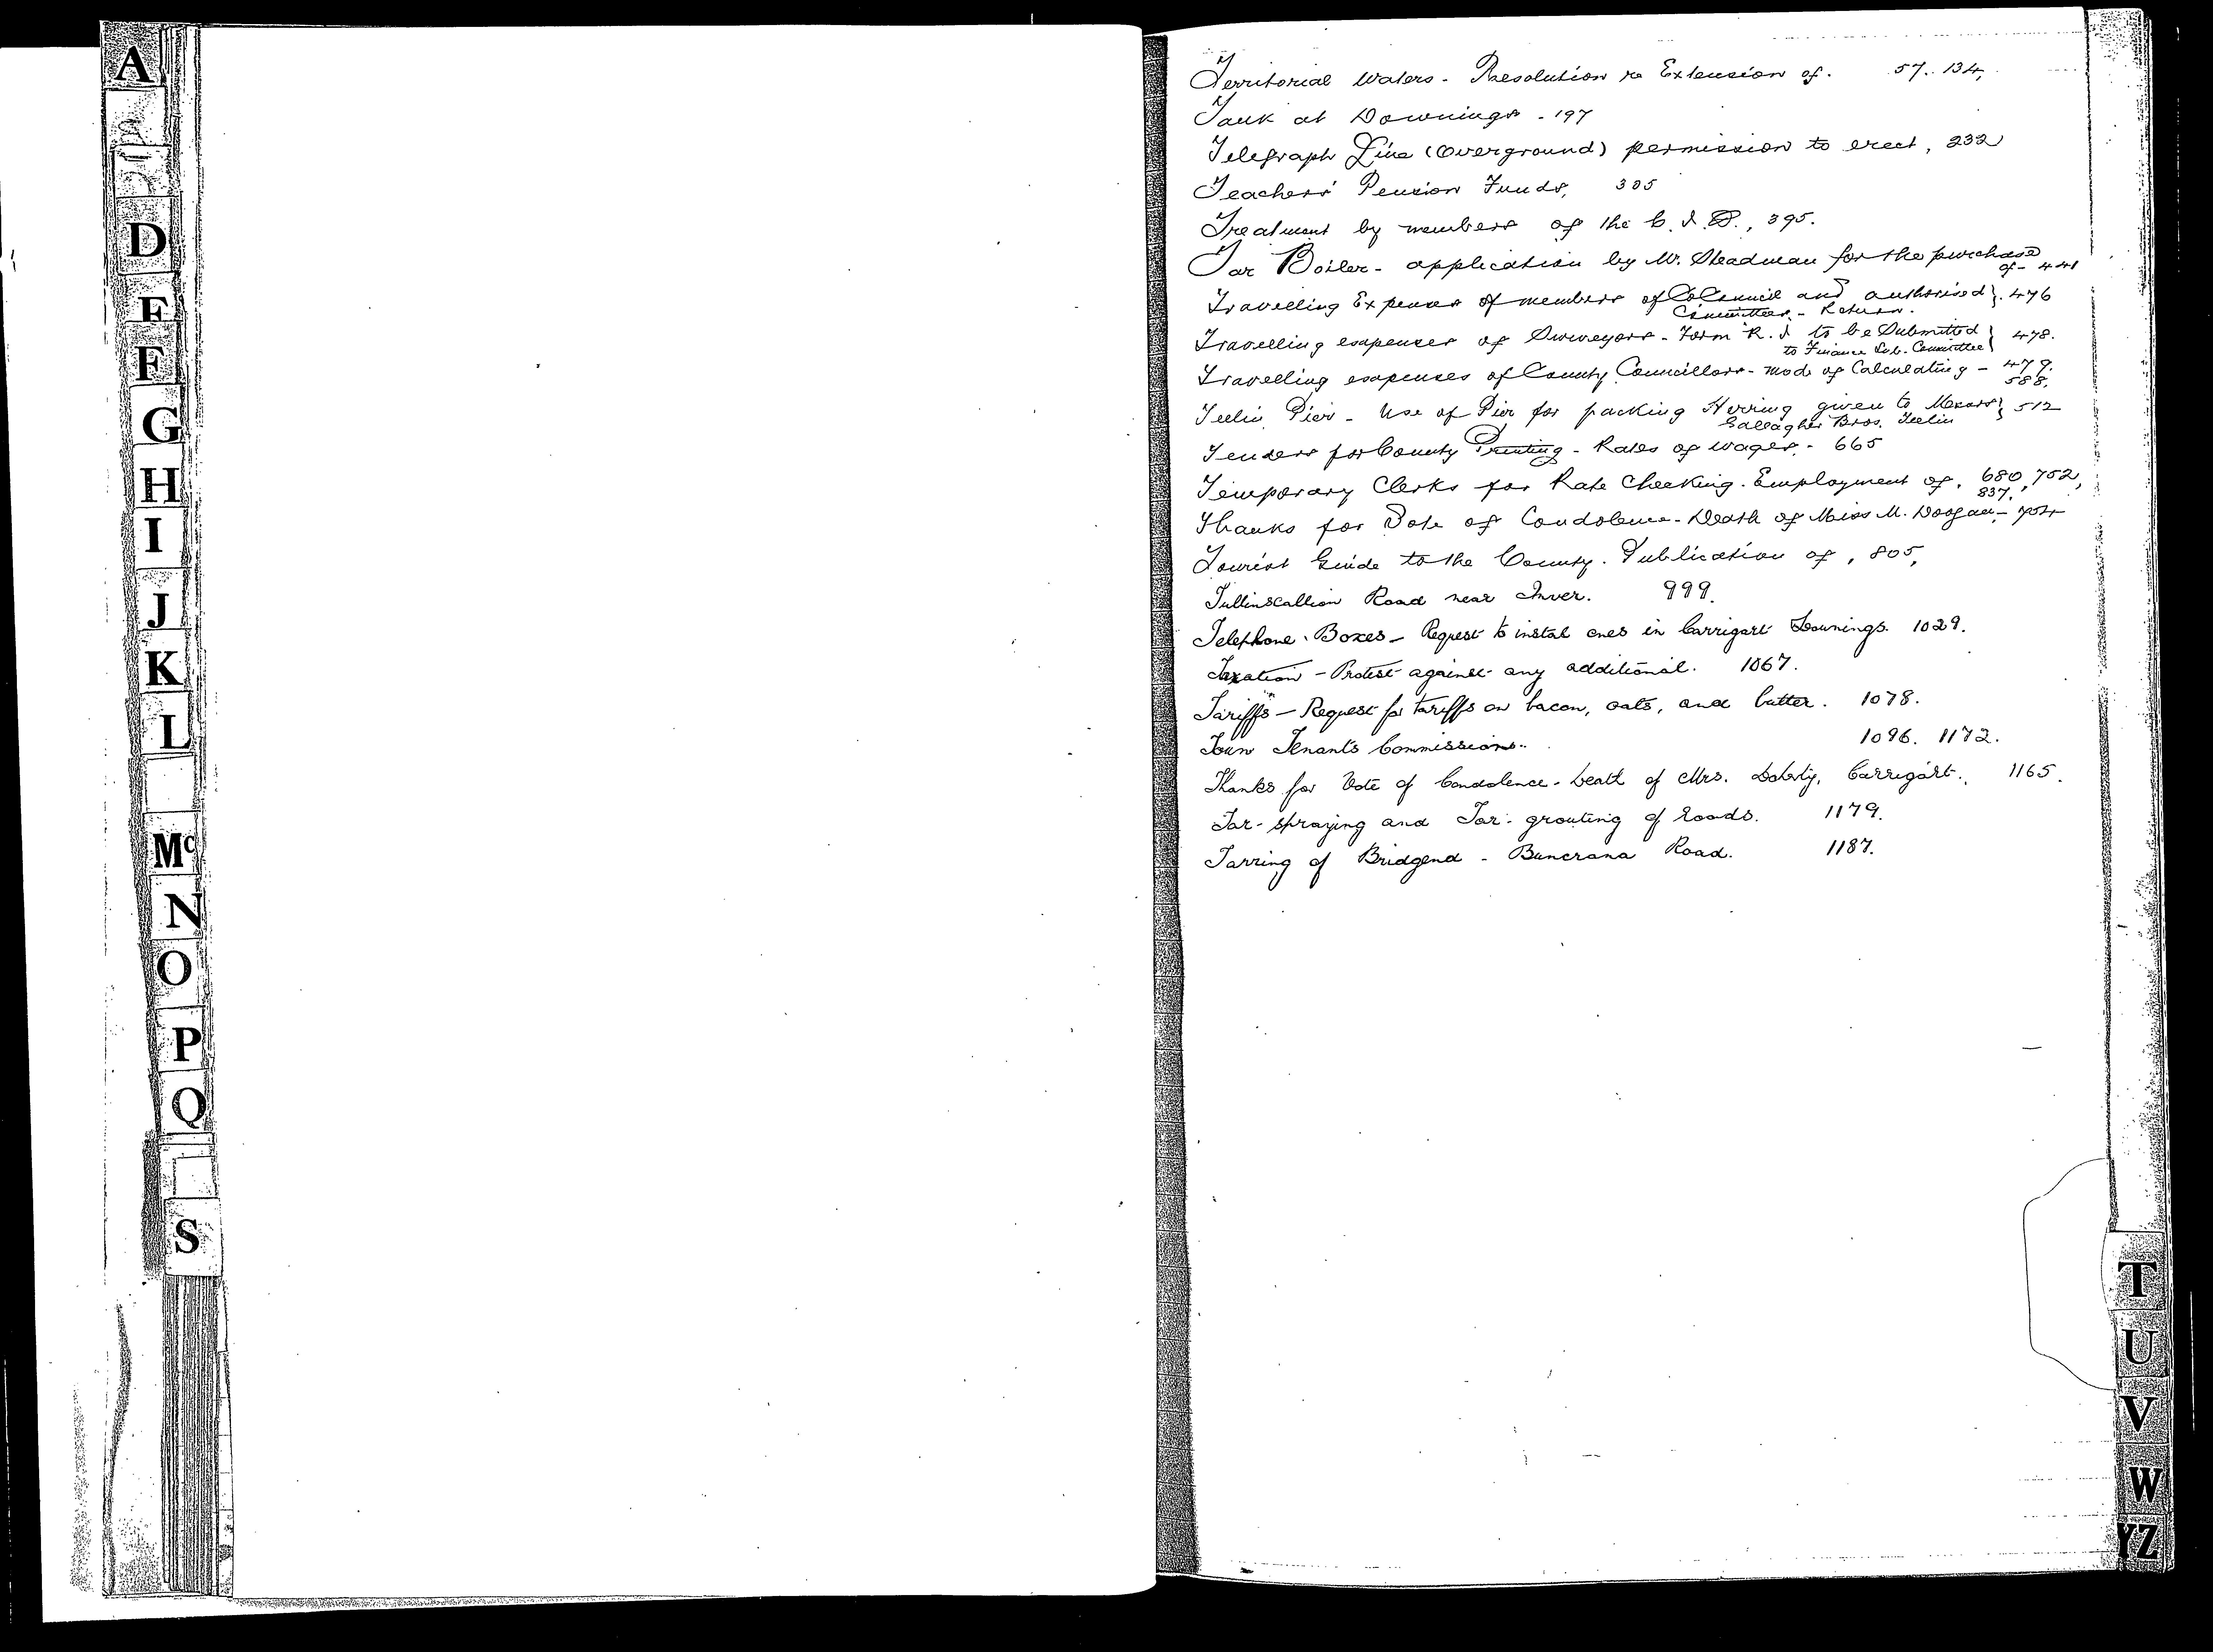 A
D
E
F
G
H
I
J
K
L
Mc
N
O
P
Q
S
Territorial Waters - Resolution re Extension of. 57. 134,
Tank at Downings - 197
Telegraph Line (Overground) permission to erect, 232
Teachers' Pension Funds, 305
Treatment by members of the C.I.D., 395.
Tar Boiler - application by Mr. Steadman for the purchase
of - 441
Travelling Expenses of members of Co Council and authorised } 476
Committees - Return.
Travelling expenses of Surveyors - Form R. I to be Submitted } 478.
to Finance Sub-Committee
Travelling expenses of County Councillors - mode of Calculating - 479.
588.
Teelin Pier - Use of Pier for packing Herring given to Messrs } 512
Gallagher Bros. Teelin
Tenders for County Printing - Rates of wages - 665
Temporary Clerks for Rate Checking. Employment of, 680, 752,
837.
Thanks for Vote of Condolence - Death of Miss M. Doogan -
Tourist Guide to the County. Publication of, 805,
Tullinscallion Road near Inver. 999.
Telephone Boxes - Request to instal ones in Carrigart Downings. 1029.
Taxation - Protest against any additional. 1067.
Tariffs - Request for tariffs on bacon, oats, and butter. 1078.
Town Tenants Commission. 1096. 1172.
Thanks for Vote of Condolence - Death of Mrs. Doherty, Carrigart. 1165.
Tar-spraying and Tar-grouting of roads. 1179.
Tarring of Bridgend - Buncrana Road. 1187.
T
U
V
W
YZ